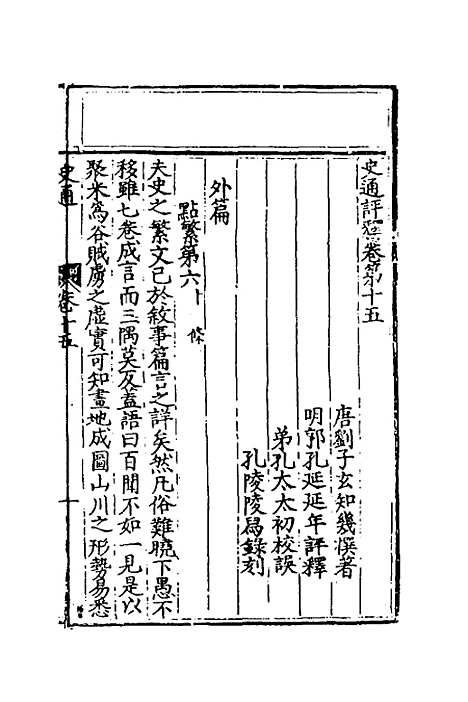 史通評釋卷第十五
唐劉子玄知幾撰著
明郭孔延延年評釋
弟孔太太初校誤
孔陵陵舄錄刻
外篇
點繁第六
條
夫史之繁文已於敘事篇言之詳矣然凡俗難曉下愚不
移雖七卷成言而三隅莫反蓋語曰百聞不如一見是以
聚米為谷賊虜之虛實可知畫地成圖山川之形勢易悉
史通
卷十五
一